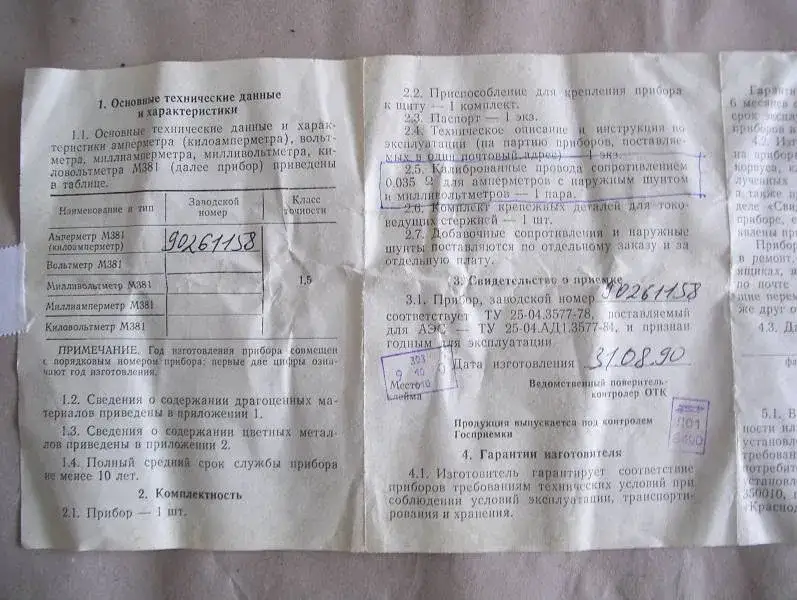 1. Основные технические данные
и характеристики
1.1. Основные технические данные и харак-
теристики амперметра (килоамперметра), вольт-
метра, миллиамперметра, милливольтметра, ки-
ловольтметра М381 (далее прибор) приведены
в таблице.
Наименование и тип
Заводской
номер
Класс
точности
Амперметр М381
(килоамперметр)
90261158
Вольтметр М381
Милливольтметр М381
1,5
Миллиамперметр М381
Киловольтметр М381
ПРИМЕЧАНИЕ. Год изготовления прибора совмещен
с порядковым номером прибора: первые две цифры озна-
чают год изготовления.
1.2. Сведения о содержании драгоценных ма-
териалов приведены в приложении 1.
1.3. Сведения о содержании цветных метал-
лов приведены в приложении 2.
1.4. Полный средний срок службы прибора
не менее 10 лет.
2. Комплектность
2.1. Прибор — 1 шт.
2.2. Приспособление для крепления прибора
к щиту — 1 комплект.
2.3. Паспорт — 1 экз.
2.4. Техническое описание и инструкция по
эксплуатации (на партию приборов, поставляе-
мых в один почтовый адрес) — 1 экз.
2.5. Калиброванные провода сопротивлением
0,035 Ω для амперметров с наружным шунтом
и милливольтметров — 1 пара.
2.6. Комплект крепежных деталей для токо-
ведущих стержней — 1 шт.
2.7. Добавочные сопротивления и наружные
шунты поставляются по отдельному заказу и за
отдельную плату.
3. Свидетельство о приемке
3.1. Прибор, заводской номер 90261158
соответствует ТУ 25-04.3577-78, поставляемый
для АЭС — ТУ 25-04.АД1.3577-84, и признан
годным для эксплуатации
Дата изготовления 31.08.90
Место
клейма
Ведомственный поверитель-
контролер ОТК
Продукция выпускается под контролем
Госприемки
4. Гарантии изготовителя
4.1. Изготовитель гарантирует соответствие
приборов требованиям технических условий при
соблюдении условий эксплуатации, транспорти-
рования и хранения.
Гаранти
6 месяцев с
срок эксплу
приборов в
4.2. Изг
на приборе
корпуса, кл
лученных
а также пр
деле «Сви
приборе, е
явлены при
Прибор
в ремонт,
ящиках, и
по почте
щие перем
же друг о
4.3. Д
5.1. В
ности ил
установле
требован
потребите
установло
350010, г
«Краснод